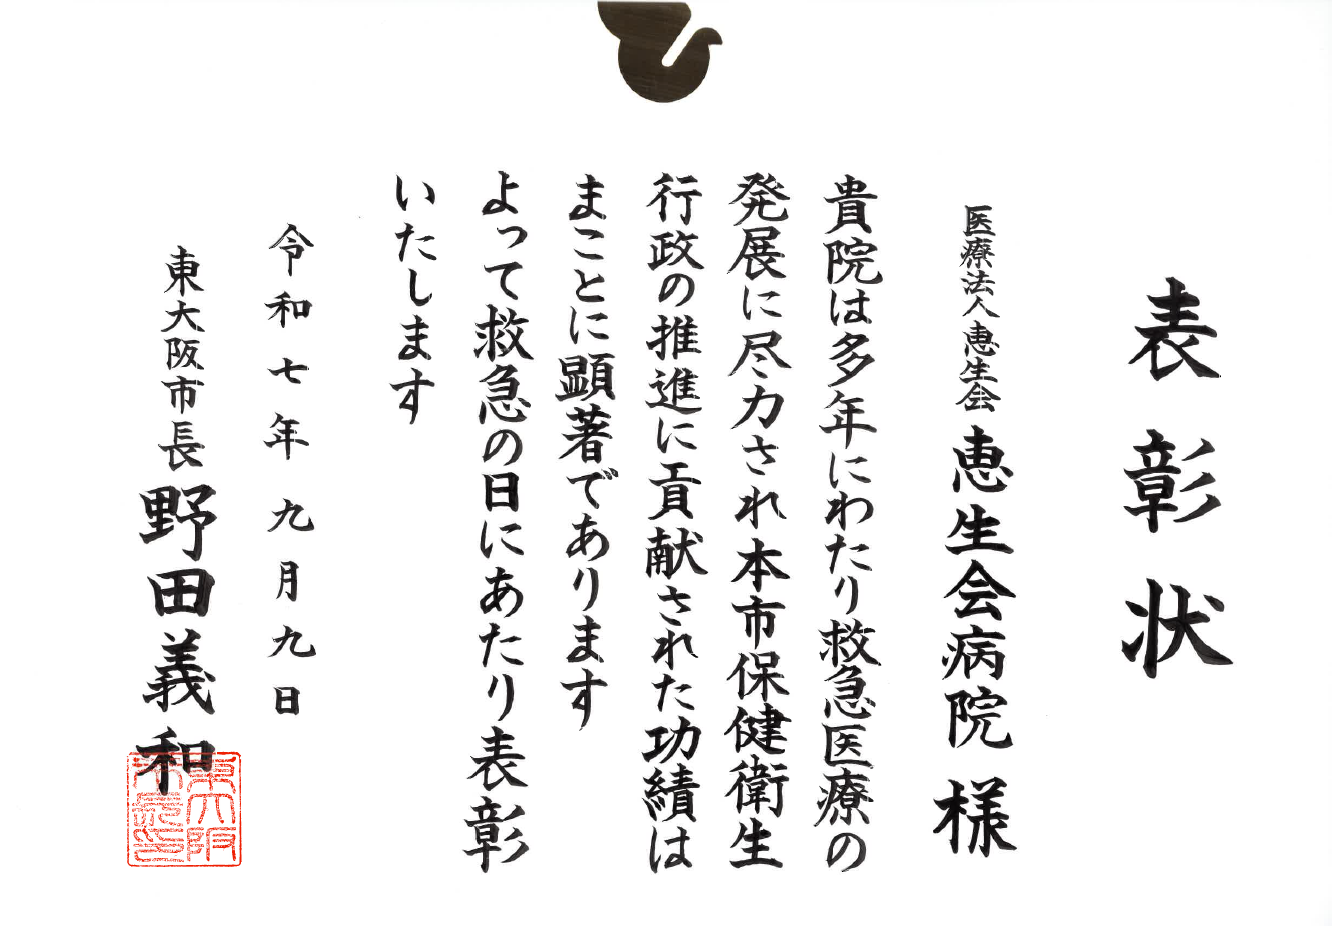 表彰状
医療法人恵生会 恵生会病院 様
貴院は多年にわたり救急医療の
発展に尽力され本市保健衛生
行政の推進に貢献された功績は
まことに顕著であります
よって救急の日にあたり表彰
いたします
令和七年九月九日
東大阪市長 野田義和